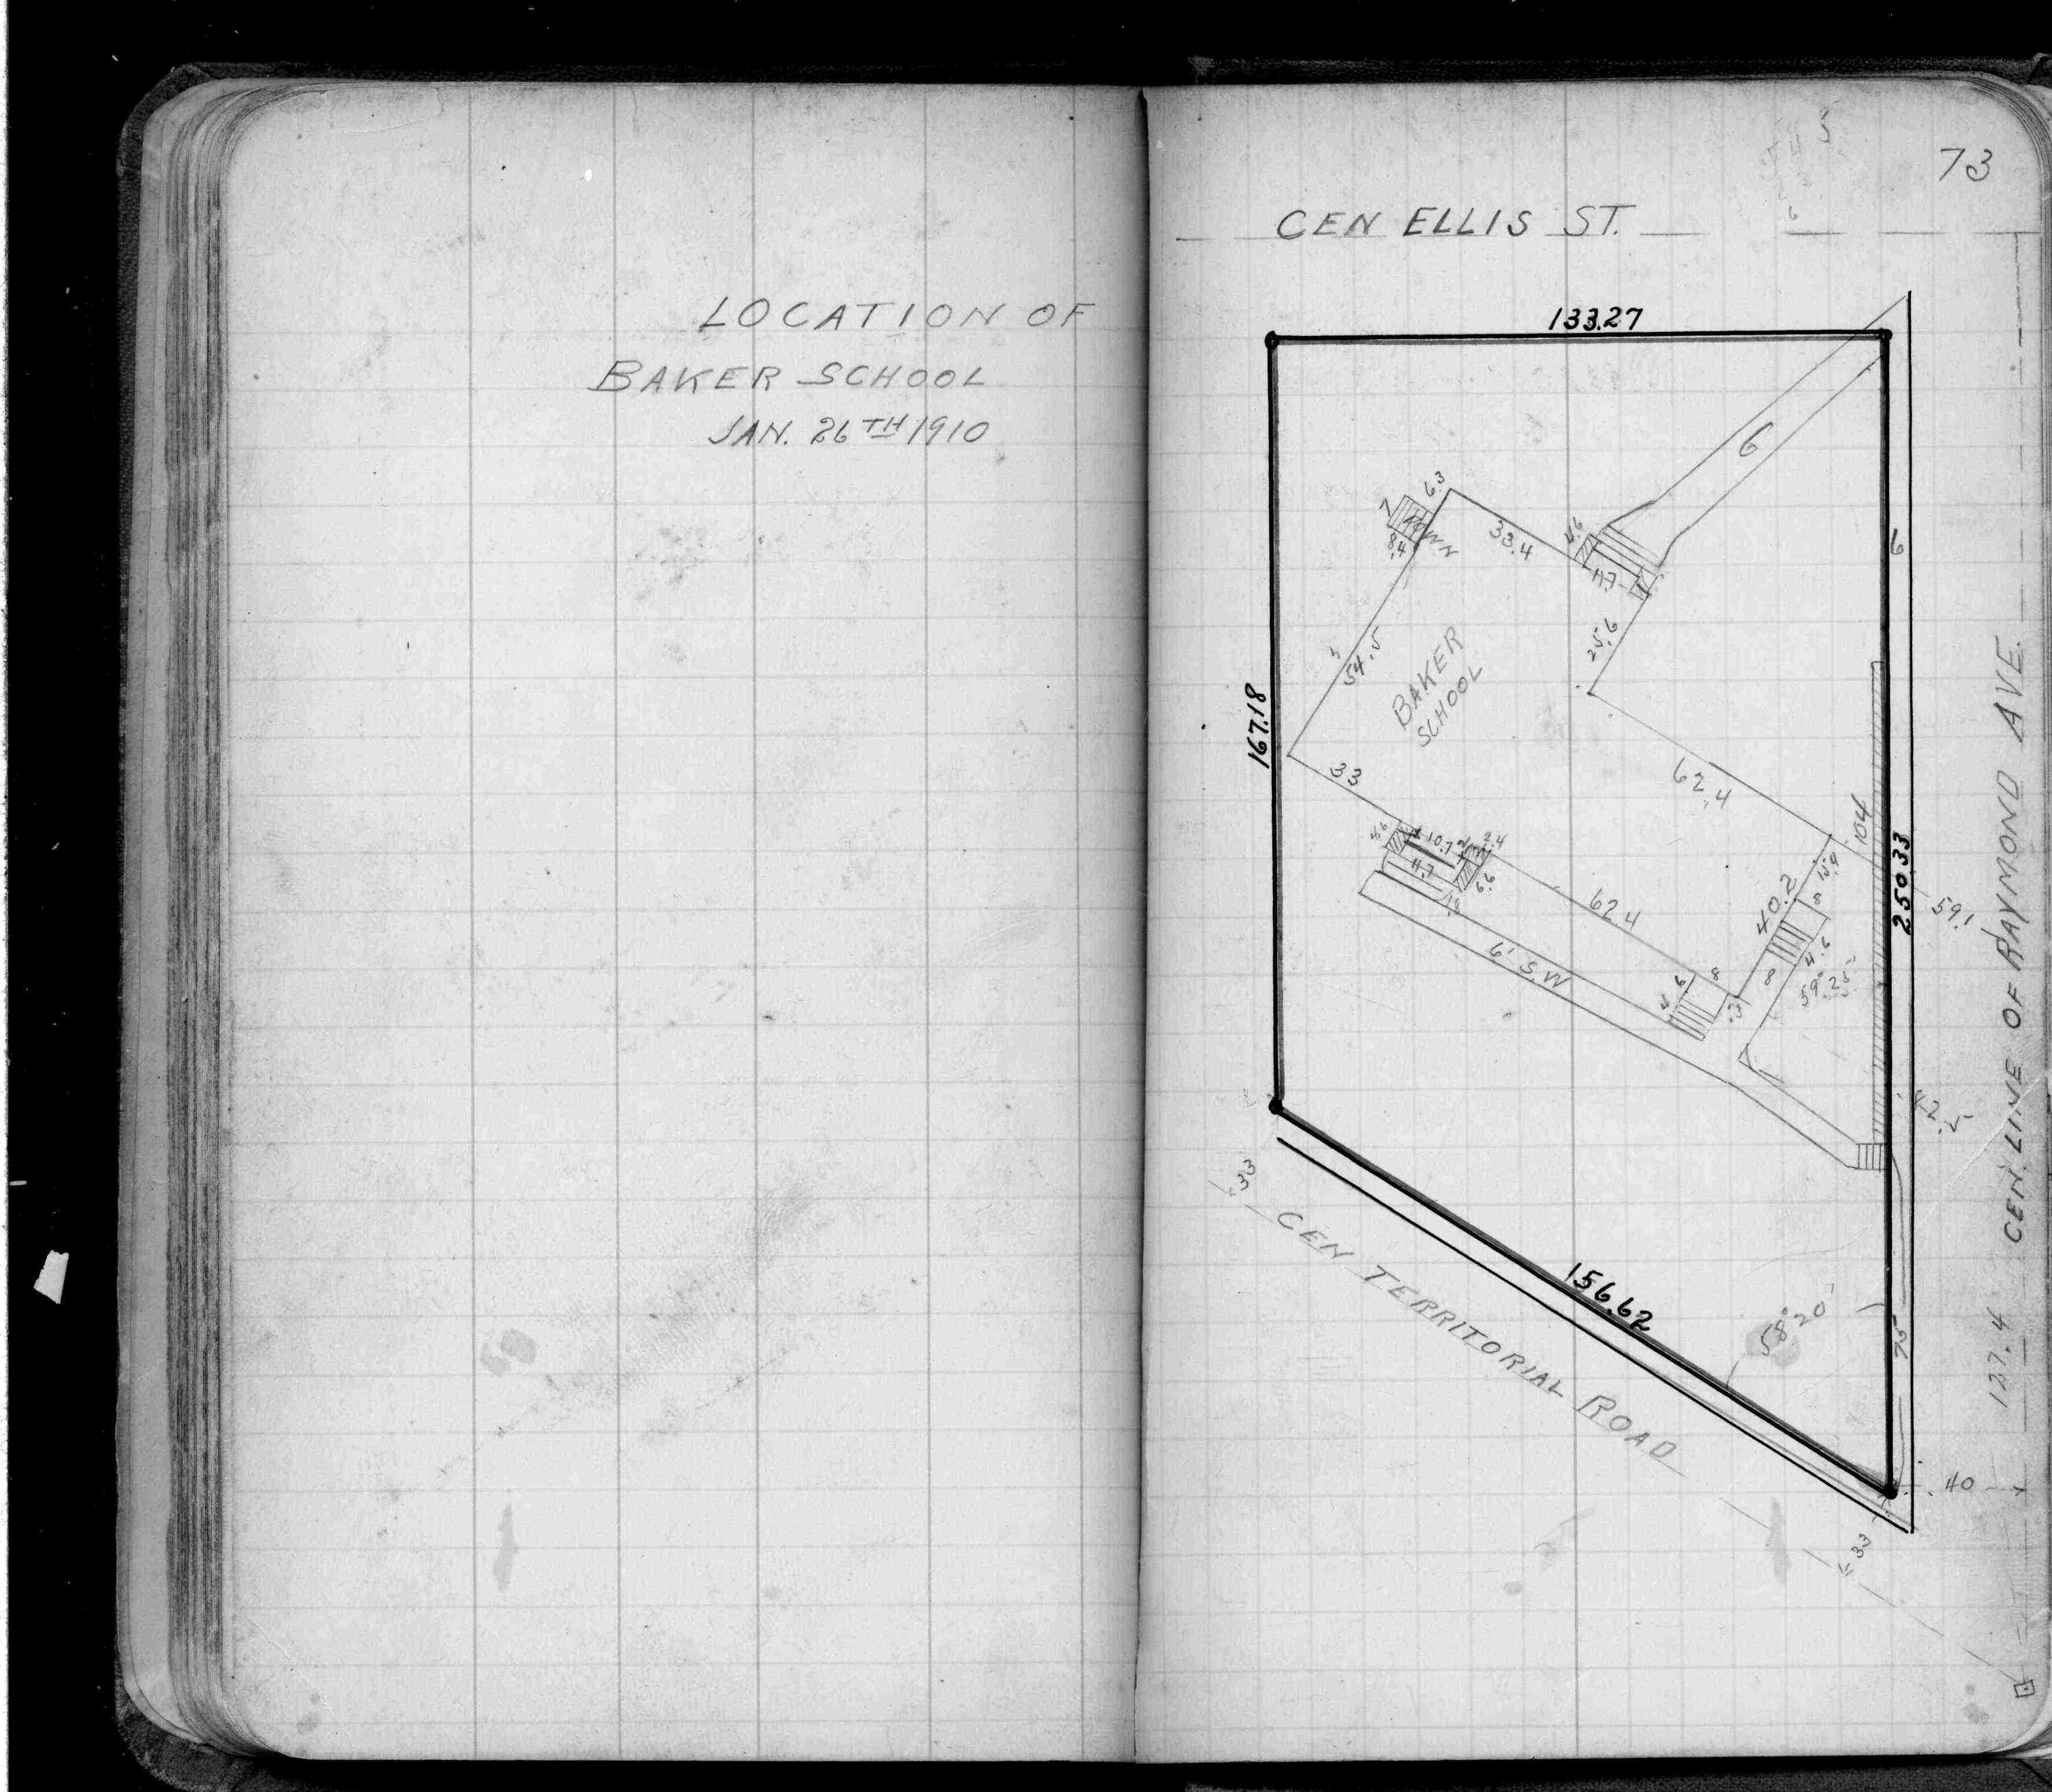 LOCATION OF
BAKER SCHOOL
JAN. 26TH 1910
73
CEN ELLIS ST.
133.27
6
6
6.3
7
DOWN
8.4
33.4
4.6
11.7
25.6
54.5
BAKER
SCHOOL
167.18
33
62.4
104
250.33
4.6
10.7
2.4
11.7
6.6
1.8
62.4
40.2
15.9
8
4.6
8
59.1
59° 25'
6' S.W
8
4.6
.3
42.5
CEN. LINE OF RAYMOND AVE.
33
CEN TERRITORIAL ROAD
156.62
58° 20'
75
127.4
40
33